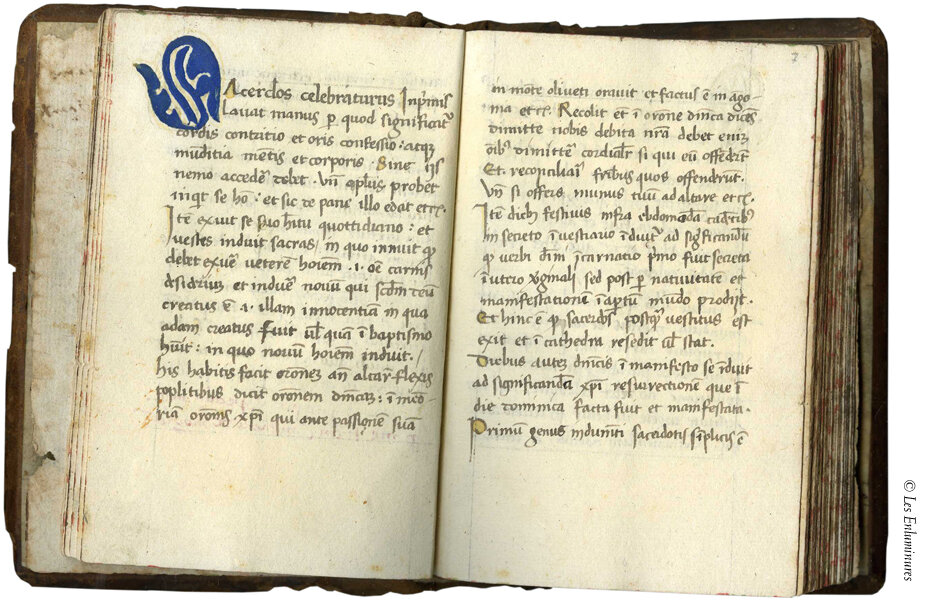 SAcerdos celebraturus Inprimis
lauat manus p quod significat᷑
cordis contritio et oris confessio : atqȝ
mūditia mētis et corporis · Sine iis
nemo accedē debet · Vn̄ apl̄us probet
inqt se hō : et sic de pane illo edat etc̄.
Itē exuit se suo hītu quottidiano : et
vestes induit sacras / in quo innuit qp
debet exuē veterē hoiem̄ .i. oē carnis
desideriū et induē nouū qui scdm̄ deū
creatus ē .i. illam innocentiā in qua
adam creatus fuit ul̄ quā ī baptismo
hūit : in quo nouū hoiem̄ induit . /
his habitis facit oronēȝ an̄ altar̄ flexis
poplitibus dicit oronēm dn̄icaȝ : ī meō
ria oronis xp̄i qui ante passionē suā
7
in mōte oliueti orauit et factus ē in ago
nia etc̄. Recolit ēt ī orōne dn̄ica dicēs
dimitte nobis debita nr̄a debet eniȝ
oīb᷒ dimittē cordialr̄ si qui eū offēdrūt
Et reconciliaī frībus quos offendrūt.
Vn̄ si offers munus tuū ad altare etc̄.
Itē dieb᷒ festiuis infra ebdomōda cādētib᷒
in secreto ī vestiario īduit᷑ ad sīgficandū
qp verbi diīn īcarnatio pīmo fuit secreta
ī utero vɡīnali sed post p natiuitatē et
manifestationē ī aptū mūdo prodijt.
Et hinc ē qp sacerdos postqȝ vestitus est
exit et ī cathedra resedit ul̄ stat.
Diebus auteȝ dn̄icis ī manifesto se īduit
ad significandā xp̄i resurrectionē que ī
die dominica facta fuit et manifestata.
Primū genus indumēti sacerdotis sīmplicis ē
© Les Enluminures